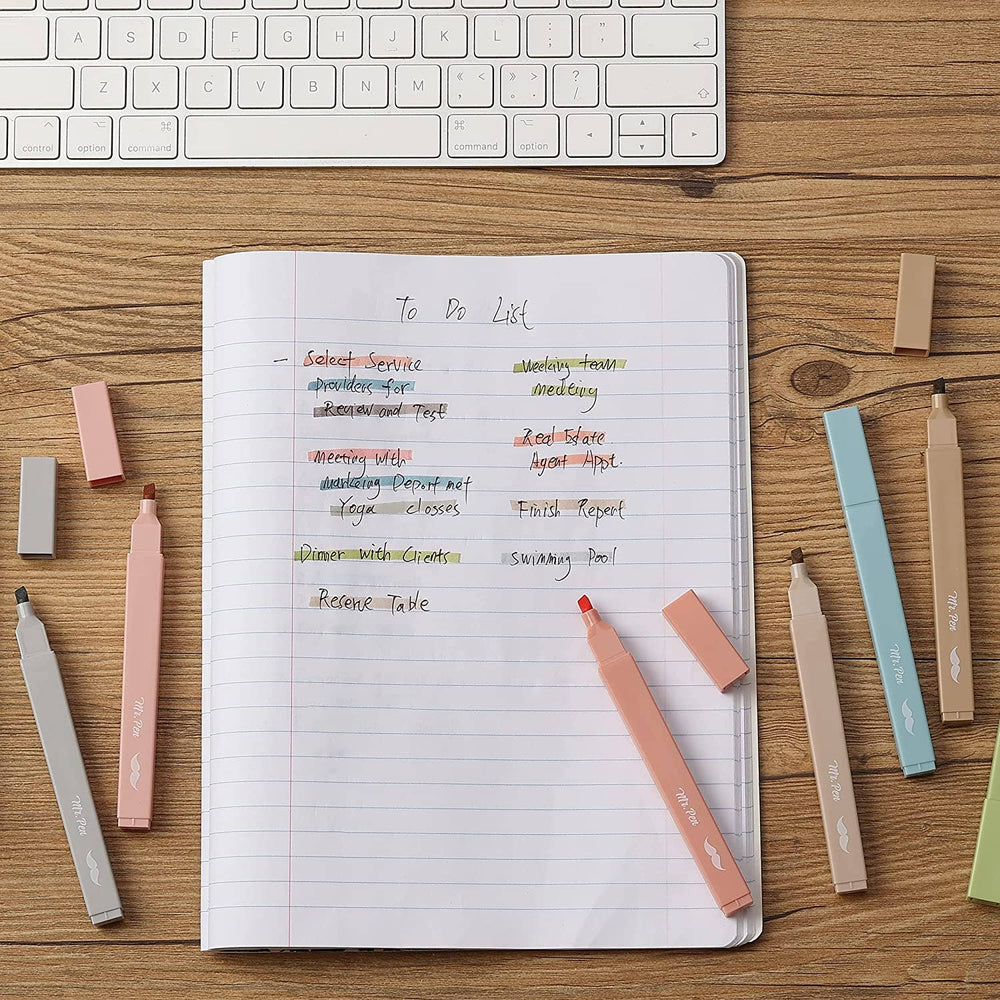 A S D F G H J K L : ; " '
Z X C V B N M « < , » > . ? /
control option command command option
To Do List
– Select Service
Providers for
Review and Test
Meeting with
Markeing Deportmet
Yoga closses
Dinner with Clients
Reserve Table
Weeking team
meeting
Real Estate
Agent Appt.
Finish Repert
Swimming Pool
Mr. Pen
Mr. Pen
Mr. Pen
Mr. Pen
Mr. Pen
Mr. Pen